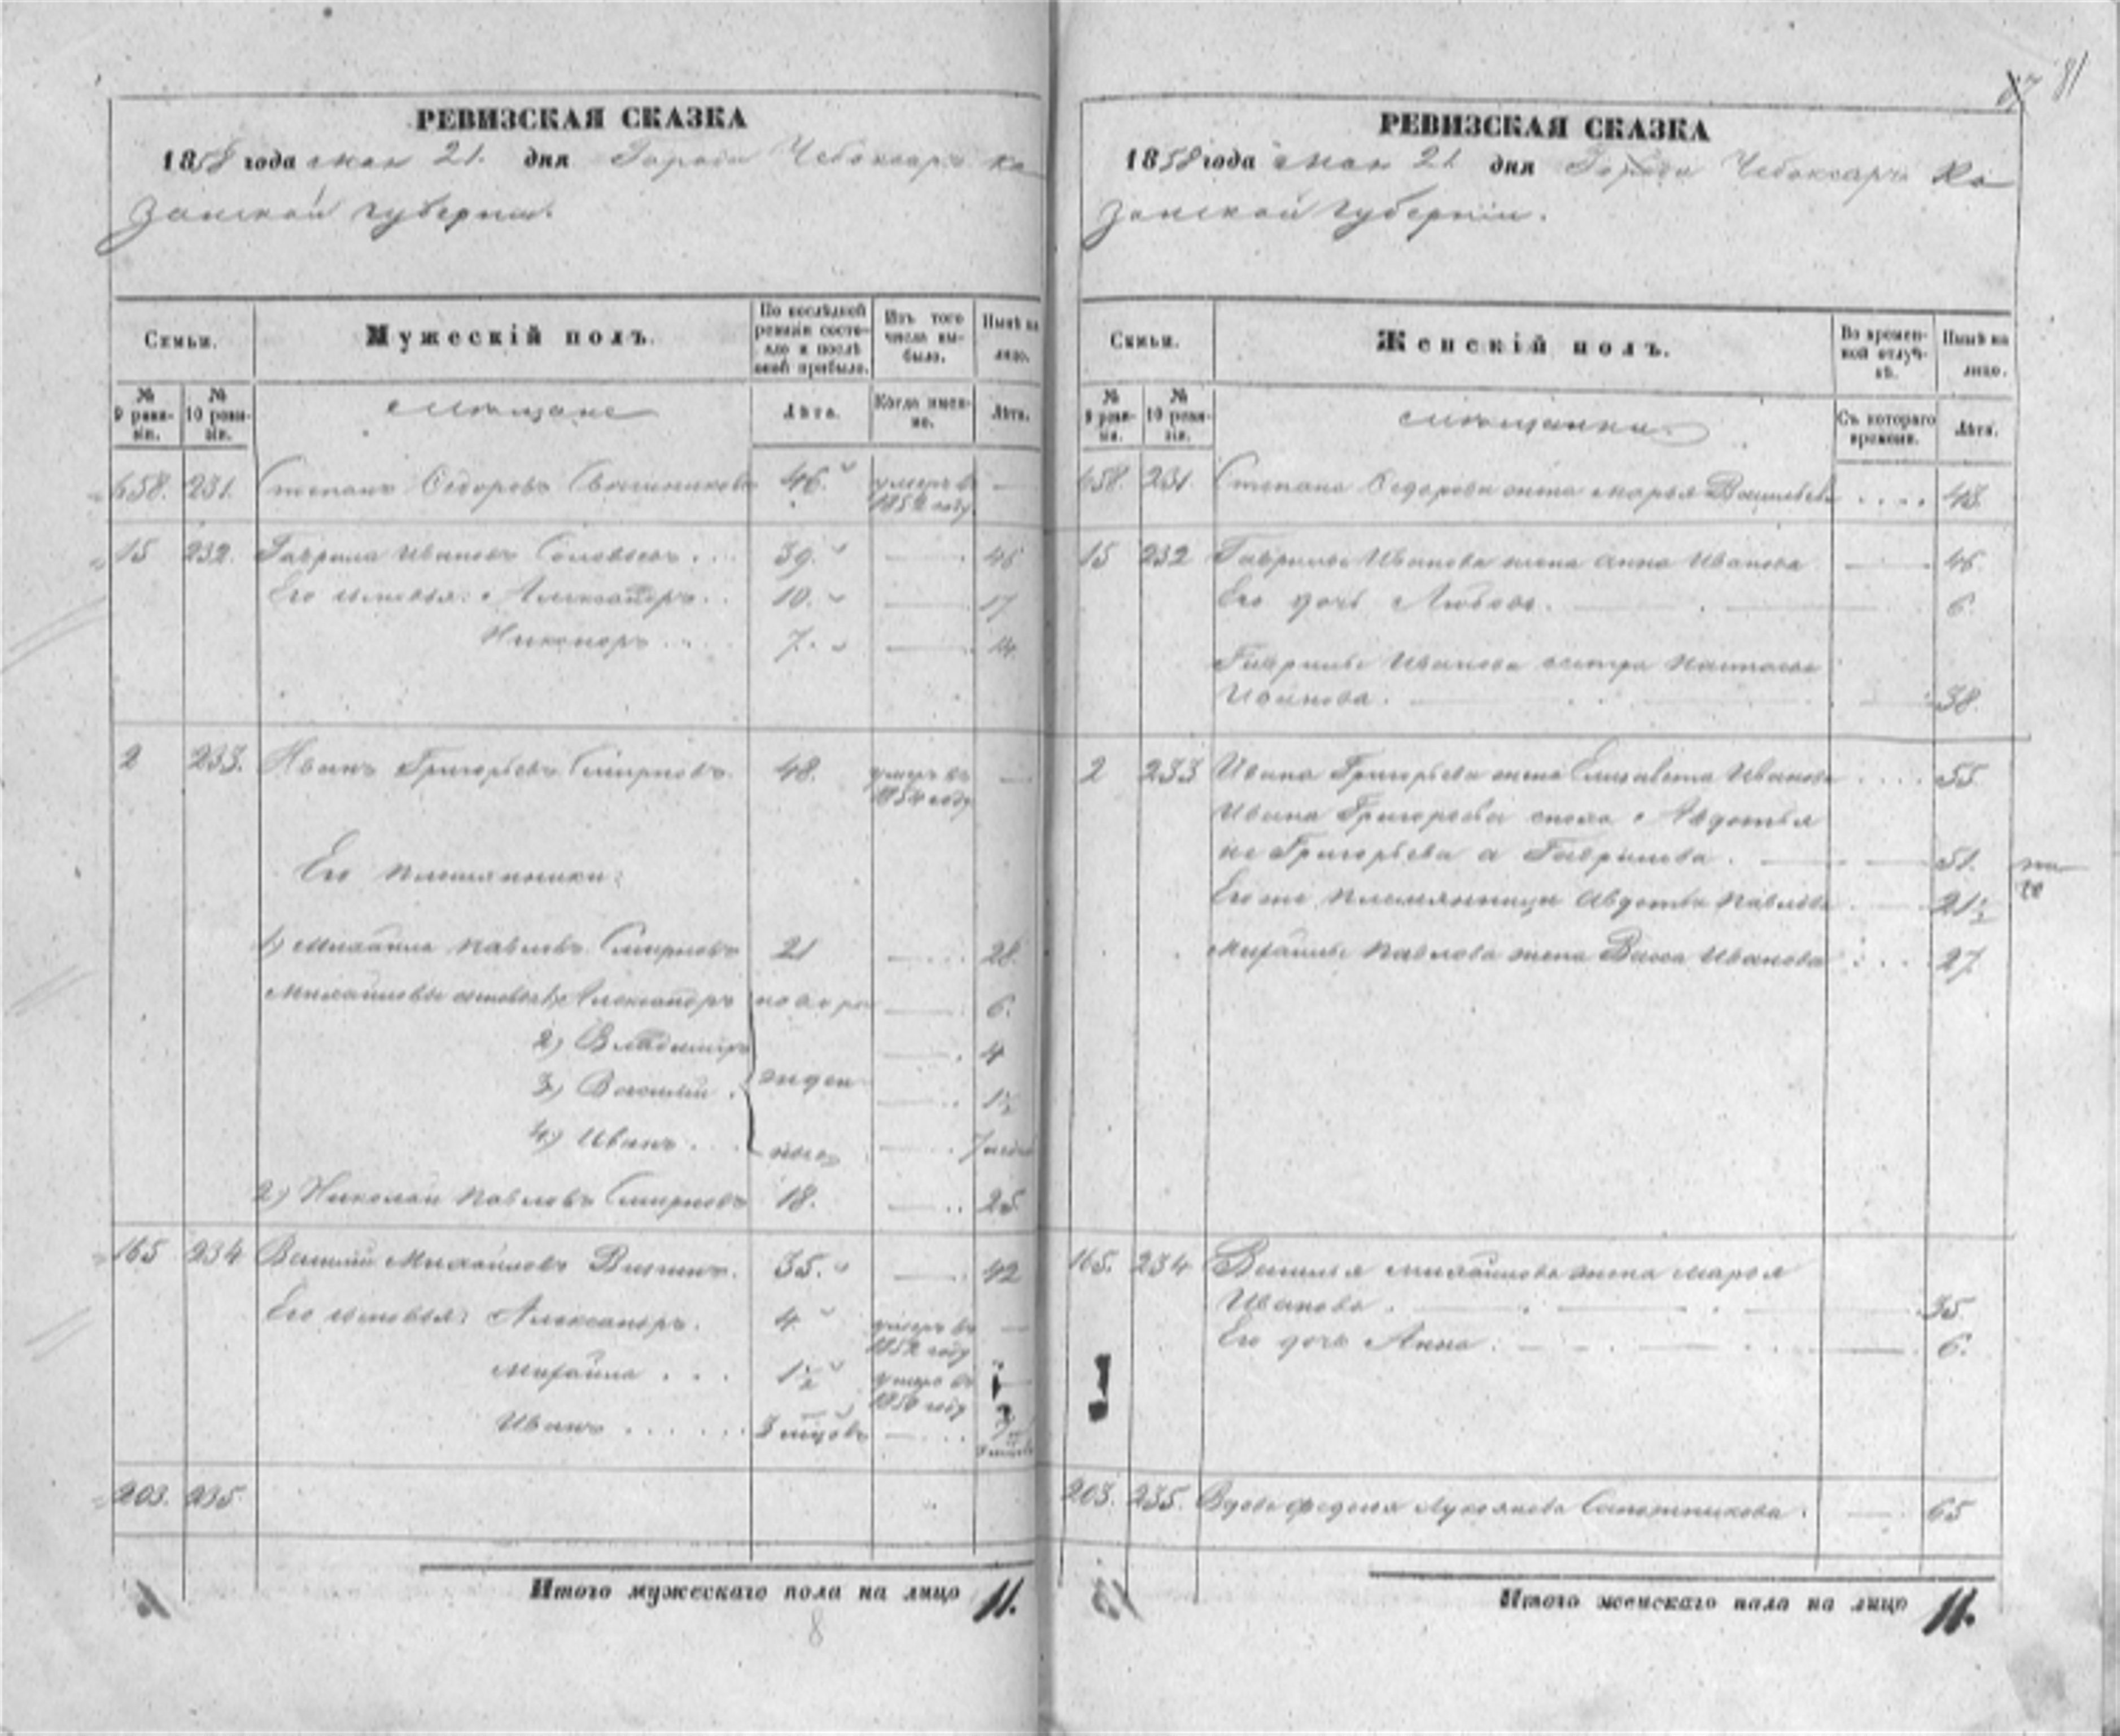 81
РЕВИЗСКАЯ СКАЗКА
1858 года мая 21. дня Города Чебоксаръ Ка
занской губерніи.
Семьи.
Мужескій полъ.
По послѣдней ревизіи состояло и послѣ оной прибыло.
Изъ того числа выбыло.
Нынѣ на лицо.
№ 9 ревизіи.
№ 10 ревизіи.
мѣщане
Лѣта.
Когда именно.
Лѣта.
658. 231. Степанъ Ѳедоровъ 46. умеръ въ —
Гаврила Ивановъ Соловьевъ 39. — 46
15 232.
Его сыновья: Александръ 10. — 17
Никоноръ 7. — 14.
2 233. Иванъ Григорьевъ Смирновъ. 48. умеръ въ —
Его племянники:
1) Михайло Павловъ Смирновъ 21 — 28.
Михайловы сыновья 1) Александръ новоро — 6.
2) Владимиръ — 4
3) Василий жден — 1½
4) Иванъ ные — 7
2) Николай Павловъ Смирновъ 18. — 25
165 234 Василий Михайловъ 35. — 42
Его сыновья: Александръ. 4. умеръ въ —
Михайло 1½ умеръ въ —
1856 году
Иванъ
203. 235.
Итого мужескаго пола на лицо 11.
8
РЕВИЗСКАЯ СКАЗКА
1858 года мая 21 дня Города Чебоксаръ Ка
занской губерніи.
Семьи.
Женскій полъ.
Во временной отлучкѣ.
Нынѣ на лицо.
№ 9 ревизіи.
№ 10 ревизіи.
мѣщанки
Съ котораго времени.
Лѣта.
658. 231. Степана Ѳедорова жена Марья Васильева 48.
15 232 Гаврилы Иванова жена Анна Иванова — 46.
Его дочь Любовь. — 6.
Гаврилы Иванова сестра Настасья
Иванова. — 38.
2 233 Ивана Григорьева жена Елизавета Иванова 55.
Ивана Григорьева сноха Авдотья
не Григорьева а Гаврилова. — 51.
Его же племянница Авдотья Павлова 21½
Михайлы Павлова жена Васса Иванова 27
165. 234 Василья Михайлова жена Марья
Иванова. — 35.
Его дочь Анна. — 6.
203. 235. Вдова Федосья Лукоянова Сапожникова. — 65
Итого женскаго пола на лицо 11.